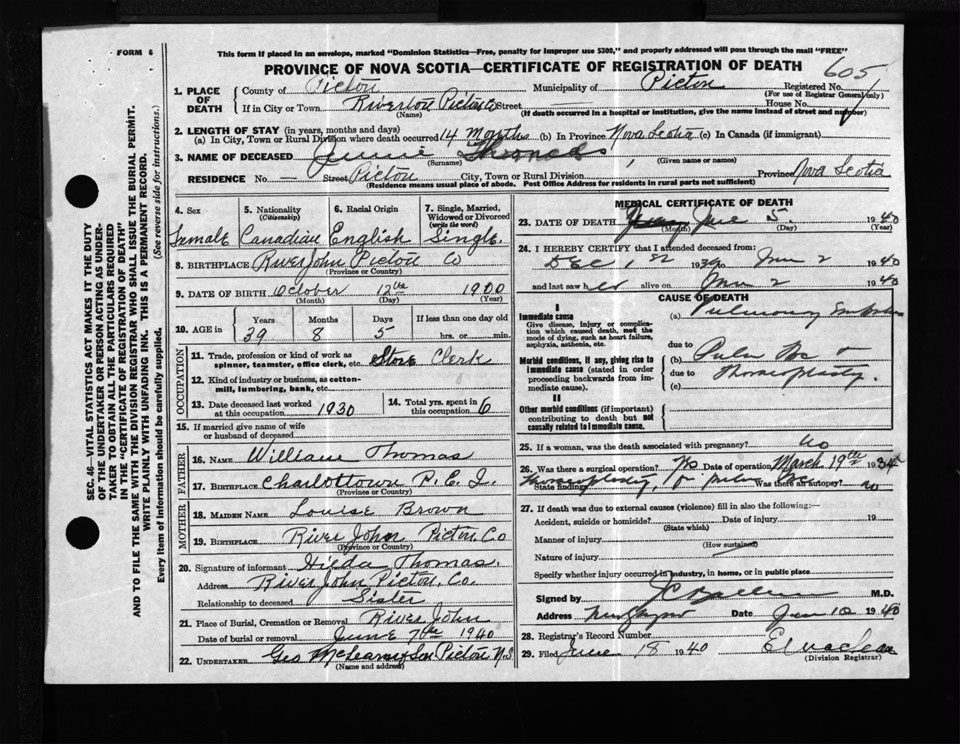 FORM 6
This form if placed in an envelope, marked "Dominion Statistics—Free, penalty for improper use $300," and properly addressed will pass through the mail "FREE"
PROVINCE OF NOVA SCOTIA—CERTIFICATE OF REGISTRATION OF DEATH
605
1. PLACE OF DEATH
County of Pictou Municipality of Pictou Registered No.
(For use of Registrar General only)
If in City or Town Riverton Pictou Co Street — House No.
(Name) (If death occurred in a hospital or institution, give the name instead of street and number)
2. LENGTH OF STAY (in years, months and days)
(a) In City, Town or Rural Division where death occurred 14 Months (b) In Province Nova Scotia (c) In Canada (if immigrant)
3. NAME OF DECEASED Thomas
(Surname) (Given name or names)
RESIDENCE No. — Street Pictou City, Town or Rural Division Province Nova Scotia
(Residence means usual place of abode. Post Office Address for residents in rural parts not sufficient)
4. Sex Female
5. Nationality (Citizenship) Canadian
6. Racial Origin English
7. Single, Married, Widowed or Divorced (write the word) Single
8. BIRTHPLACE River John Pictou Co
(Province or Country)
9. DATE OF BIRTH October 12th 1900
(Month) (Day) (Year)
10. AGE in Years Months Days If less than one day old
39 8 5 hrs. or min.
OCCUPATION
11. Trade, profession or kind of work as spinner, teamster, office clerk, etc. Store Clerk
12. Kind of industry or business, as cotton-mill, lumbering, bank, etc.
13. Date deceased last worked at this occupation 1930
14. Total yrs. spent in this occupation 6
15. If married give name of wife or husband of deceased
FATHER
16. NAME William Thomas
17. BIRTHPLACE Charlottown P.E.I.
(Province or Country)
MOTHER
18. MAIDEN NAME Louise Brown
19. BIRTHPLACE River John Pictou Co
(Province or Country)
20. Signature of informant Hilda Thomas
Address River John Pictou Co.
Relationship to deceased Sister
21. Place of Burial, Cremation or Removal River John
Date of burial or removal June 7th 1940
22. UNDERTAKER Geo Pictou N.S
(Name and address)
MEDICAL CERTIFICATE OF DEATH
23. DATE OF DEATH June 5. 1940
(Month) (Day) (Year)
24. I HEREBY CERTIFY that I attended deceased from:
Dec 1st 1939 to June 2 1940
and last saw her alive on June 2 1940
CAUSE OF DEATH
I
Immediate cause
Give disease, injury or complication which caused death, not the mode of dying, such as heart failure, asphyxia, asthenia, etc.
(a) Pulmonary
due to
Morbid conditions, if any, giving rise to immediate cause (stated in order proceeding backwards from immediate cause).
(b)
due to Thoracoplasty.
(c)
II
Other morbid conditions (if important) contributing to death but not causally related to immediate cause.
25. If a woman, was the death associated with pregnancy? no
26. Was there a surgical operation? Date of operation March 19th 1934
State findings Thoracoplasty, for Was there an autopsy? no
27. If death was due to external causes (violence) fill in also the following:—
Accident, suicide or homicide? Date of injury 19
(State which)
Manner of injury
(How sustained)
Nature of injury
Specify whether injury occurred in industry, in home, or in public place
Signed by M.D.
Address Date Jun 10 1940
28. Registrar's Record Number
29. Filed June 18 1940
(Division Registrar)
SEC. 46—VITAL STATISTICS ACT MAKES IT THE DUTY
OF THE UNDERTAKER OR PERSON ACTING AS UNDER-
TAKER TO OBTAIN ALL THE PARTICULARS REQUIRED
IN THE "CERTIFICATE OF REGISTRATION OF DEATH"
AND TO FILE THE SAME WITH THE DIVISION REGISTRAR WHO SHALL ISSUE THE BURIAL PERMIT.
WRITE PLAINLY WITH UNFADING INK. THIS IS A PERMANENT RECORD.
Every item of information should be carefully supplied. (See reverse side for instructions.)